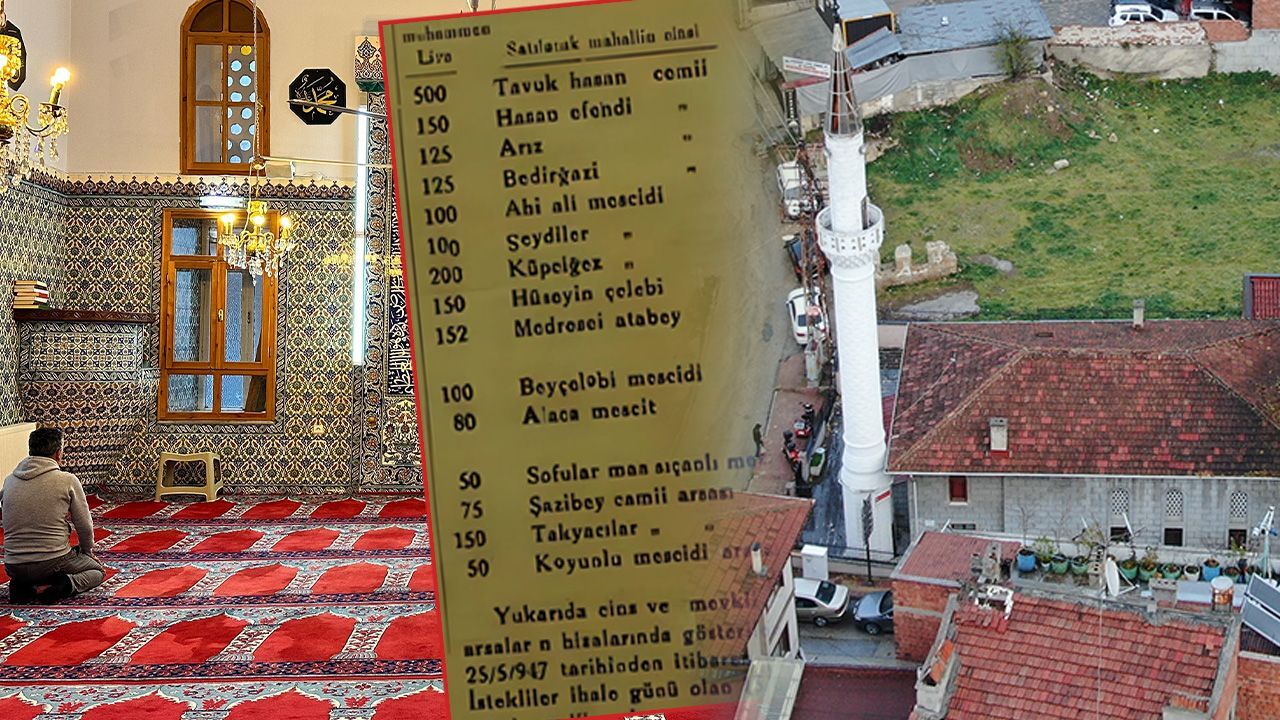 muhammen
Lira Satılacak mahallin cinsi
500 Tavuk hasan camii
150 Hasan efendi "
125 Arız "
125 Bedirğazi "
100 Ahi ali mescidi
100 Seydiler "
200 Küpelğez "
150 Hüseyin çelebi
152 Medresei atabey
100 Beyçelebi mescidi
80 Alaca mescit
50 Sofular man sıçanlı me
75 Şazibey camii arsası
150 Takyacılar " "
50 Koyunlu mescidi ars
Yukarıda cins ve mevkii
arsalar n hizalarında göster
25/5/947 tarihinden itibaren
İstekliler ihale günü olan